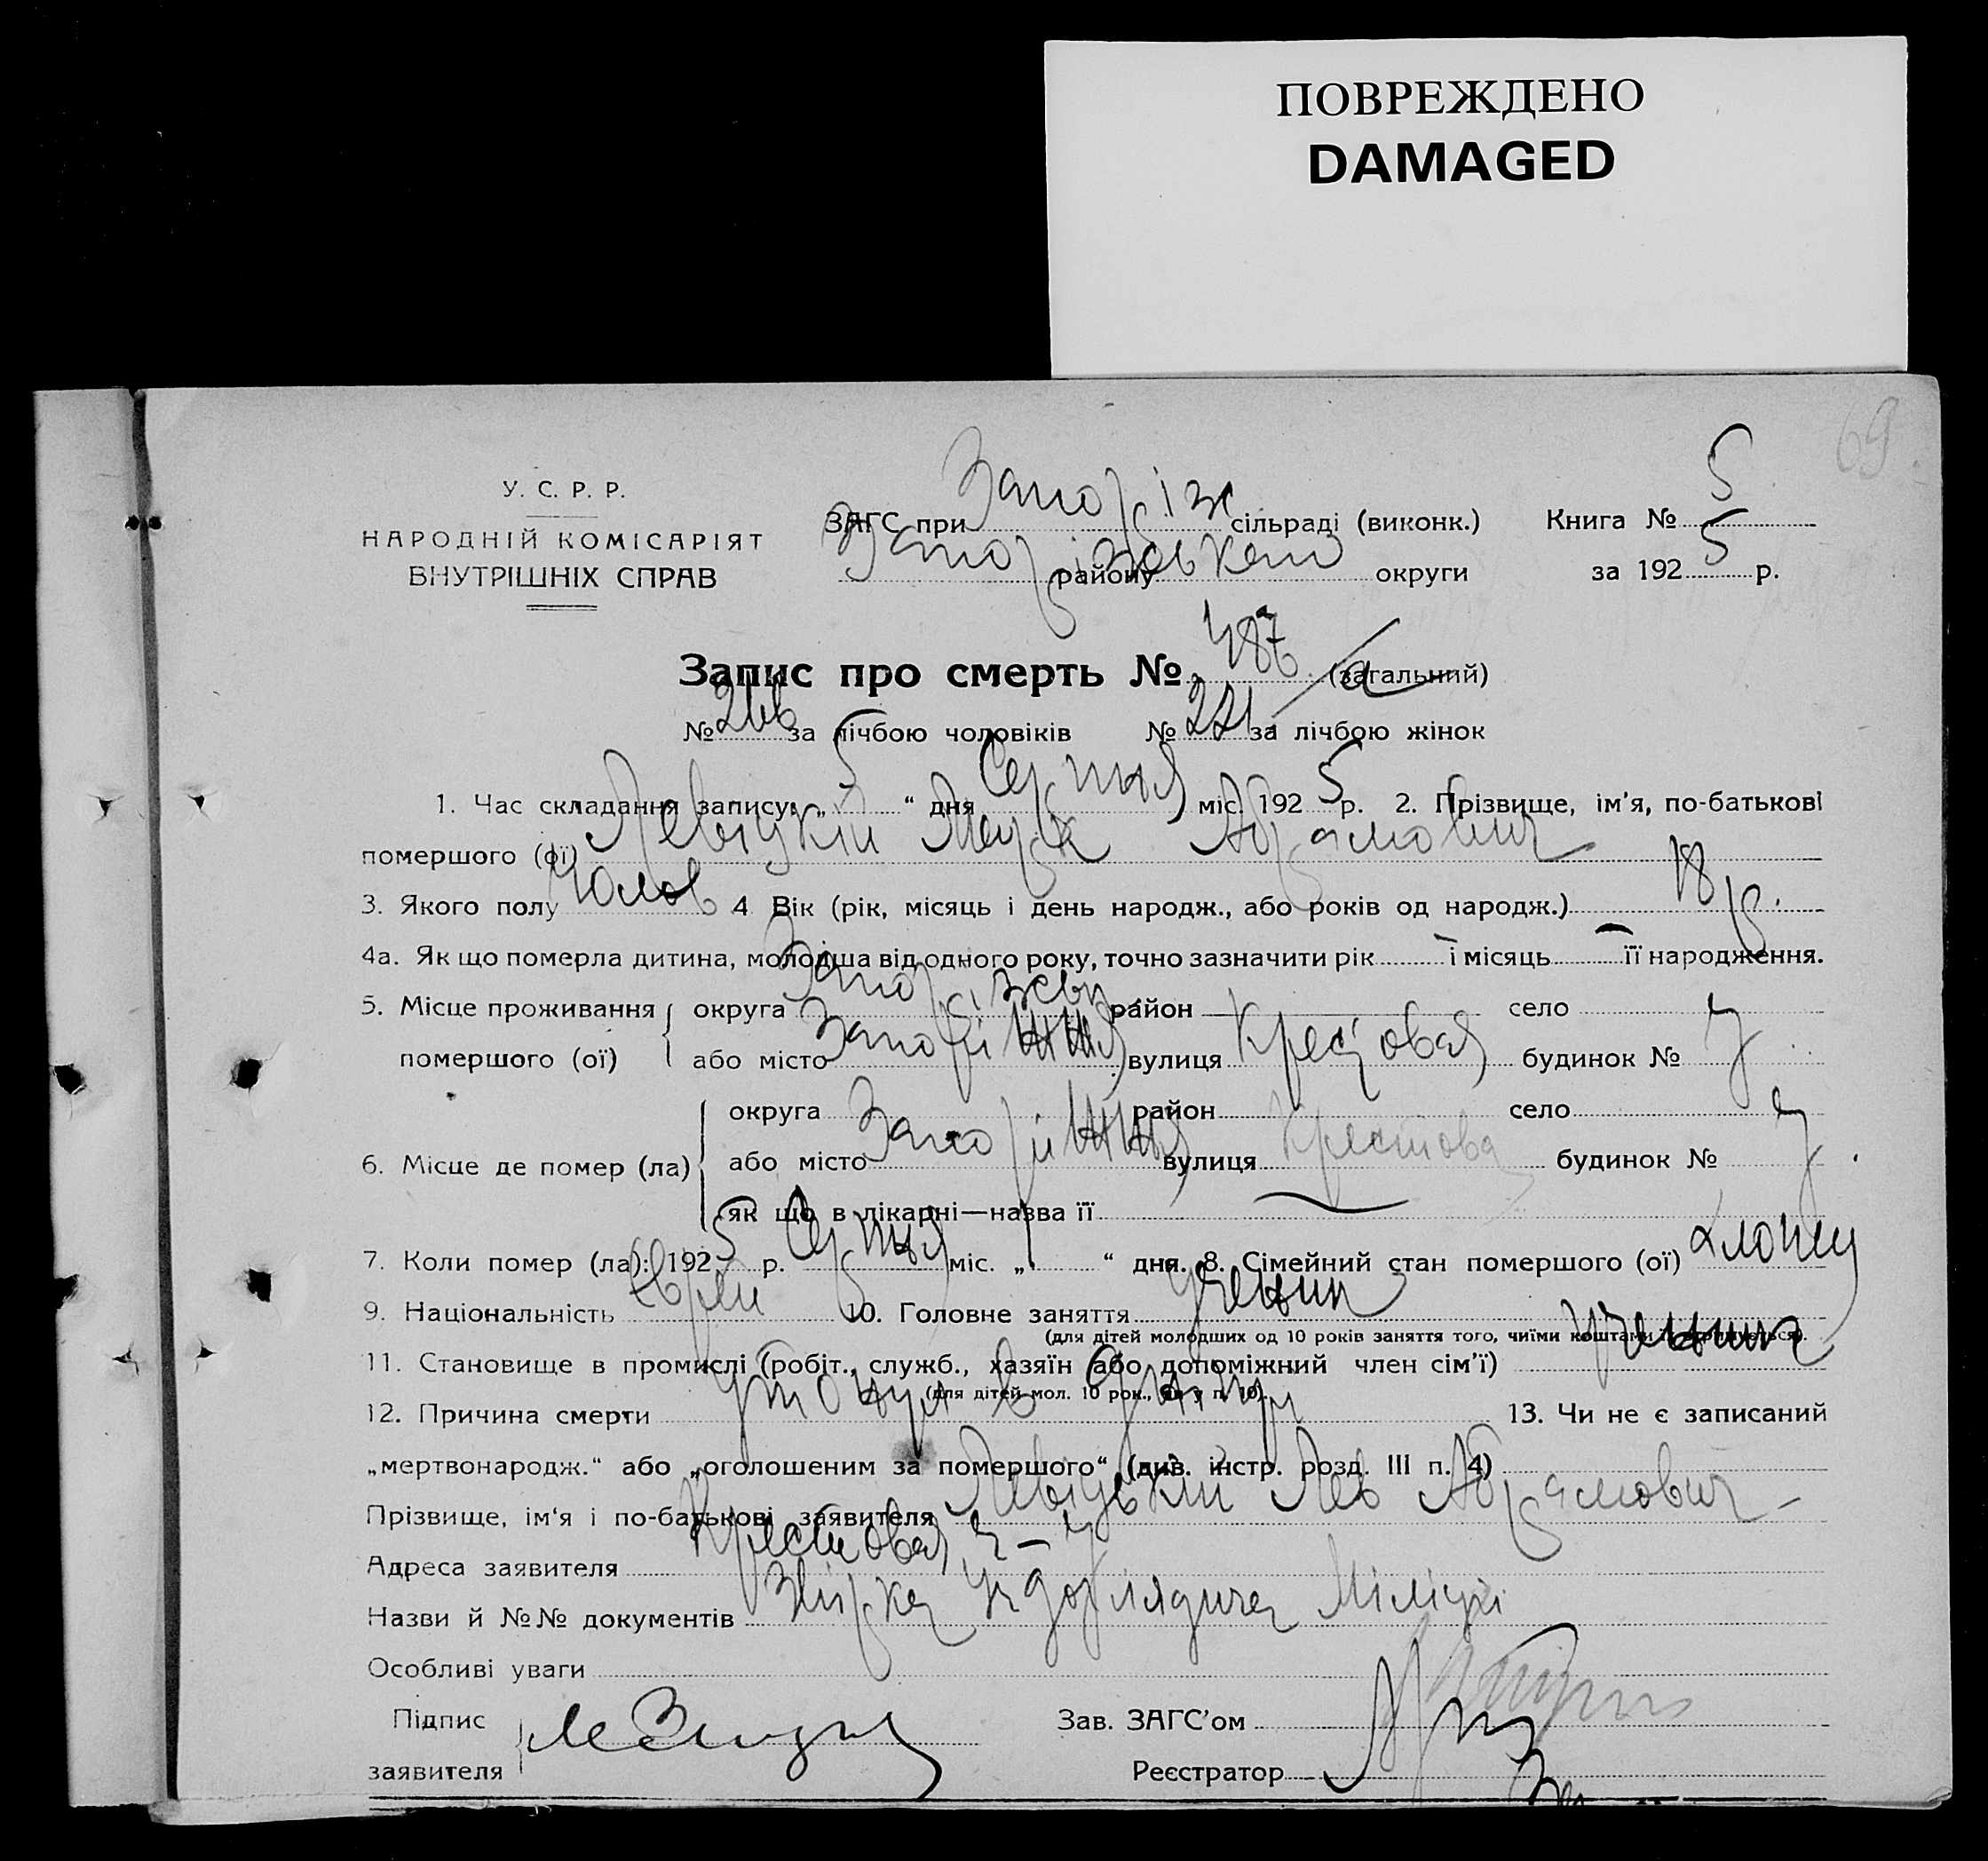 ПОВРЕЖДЕНО
DAMAGED
69.
У. С. Р. Р.
НАРОДНІЙ КОМІСАРІЯТ
ВНУТРІШНІХ СПРАВ
ЗАГС при Запоріж сільраді (виконк.) Книга № 5
району округи за 1925 р.
Запис про смерть № 487 а (загальний)
№ 266 за лічбою чоловіків № 221 за лічбою жінок
1. Час складання запису: „ 5 “ дня Серпня міс. 1925 р. 2. Прізвище, ім'я, по-батькові
помершого (ої) Левіцкій Марк Абрамович
3. Якого полу Чолов 4 Вік (рік, місяць і день народж., або років од народж.) 18 р.
4а. Як що померла дитина, молодша від одного року, точно зазначити рік — і місяць — її народження.
5. Місце проживання округа район — село
помершого (ої) або місто Запоріжжя вулиця Крестовая будинок № 7
округа район село
6. Місце де помер (ла) або місто Запоріжжя вулиця Крестова будинок № 7
як що в лікарні—назва її —
7. Коли помер (ла): 1925 р. Серпня міс. „ 1 “ дня. 8. Сімейний стан помершого (ої)
9. Національність Еврей 10. Головне заняття ученик
(для дітей молодших од 10 років заняття того, чиїми коштами їх утримується).
11. Становище в промислі (робіт., служб., хазяїн або допоміжний член сім'ї) ученик
(для дітей мол. 10 рок., як у п. 10).
12. Причина смерти утонул в 13. Чи не є записаний
„мертвонародж.“ або „оголошеним за помершого“ (див. інстр. розд. III п. 4)
Прізвище, ім'я і по-батькові заявителя Левіцький Лев Абрамович —
Адреса заявителя Крестовая
Назви й №№ документів Міліції
Особливі уваги
Підпис
Зав. ЗАГС'ом
заявителя
Реєстратор